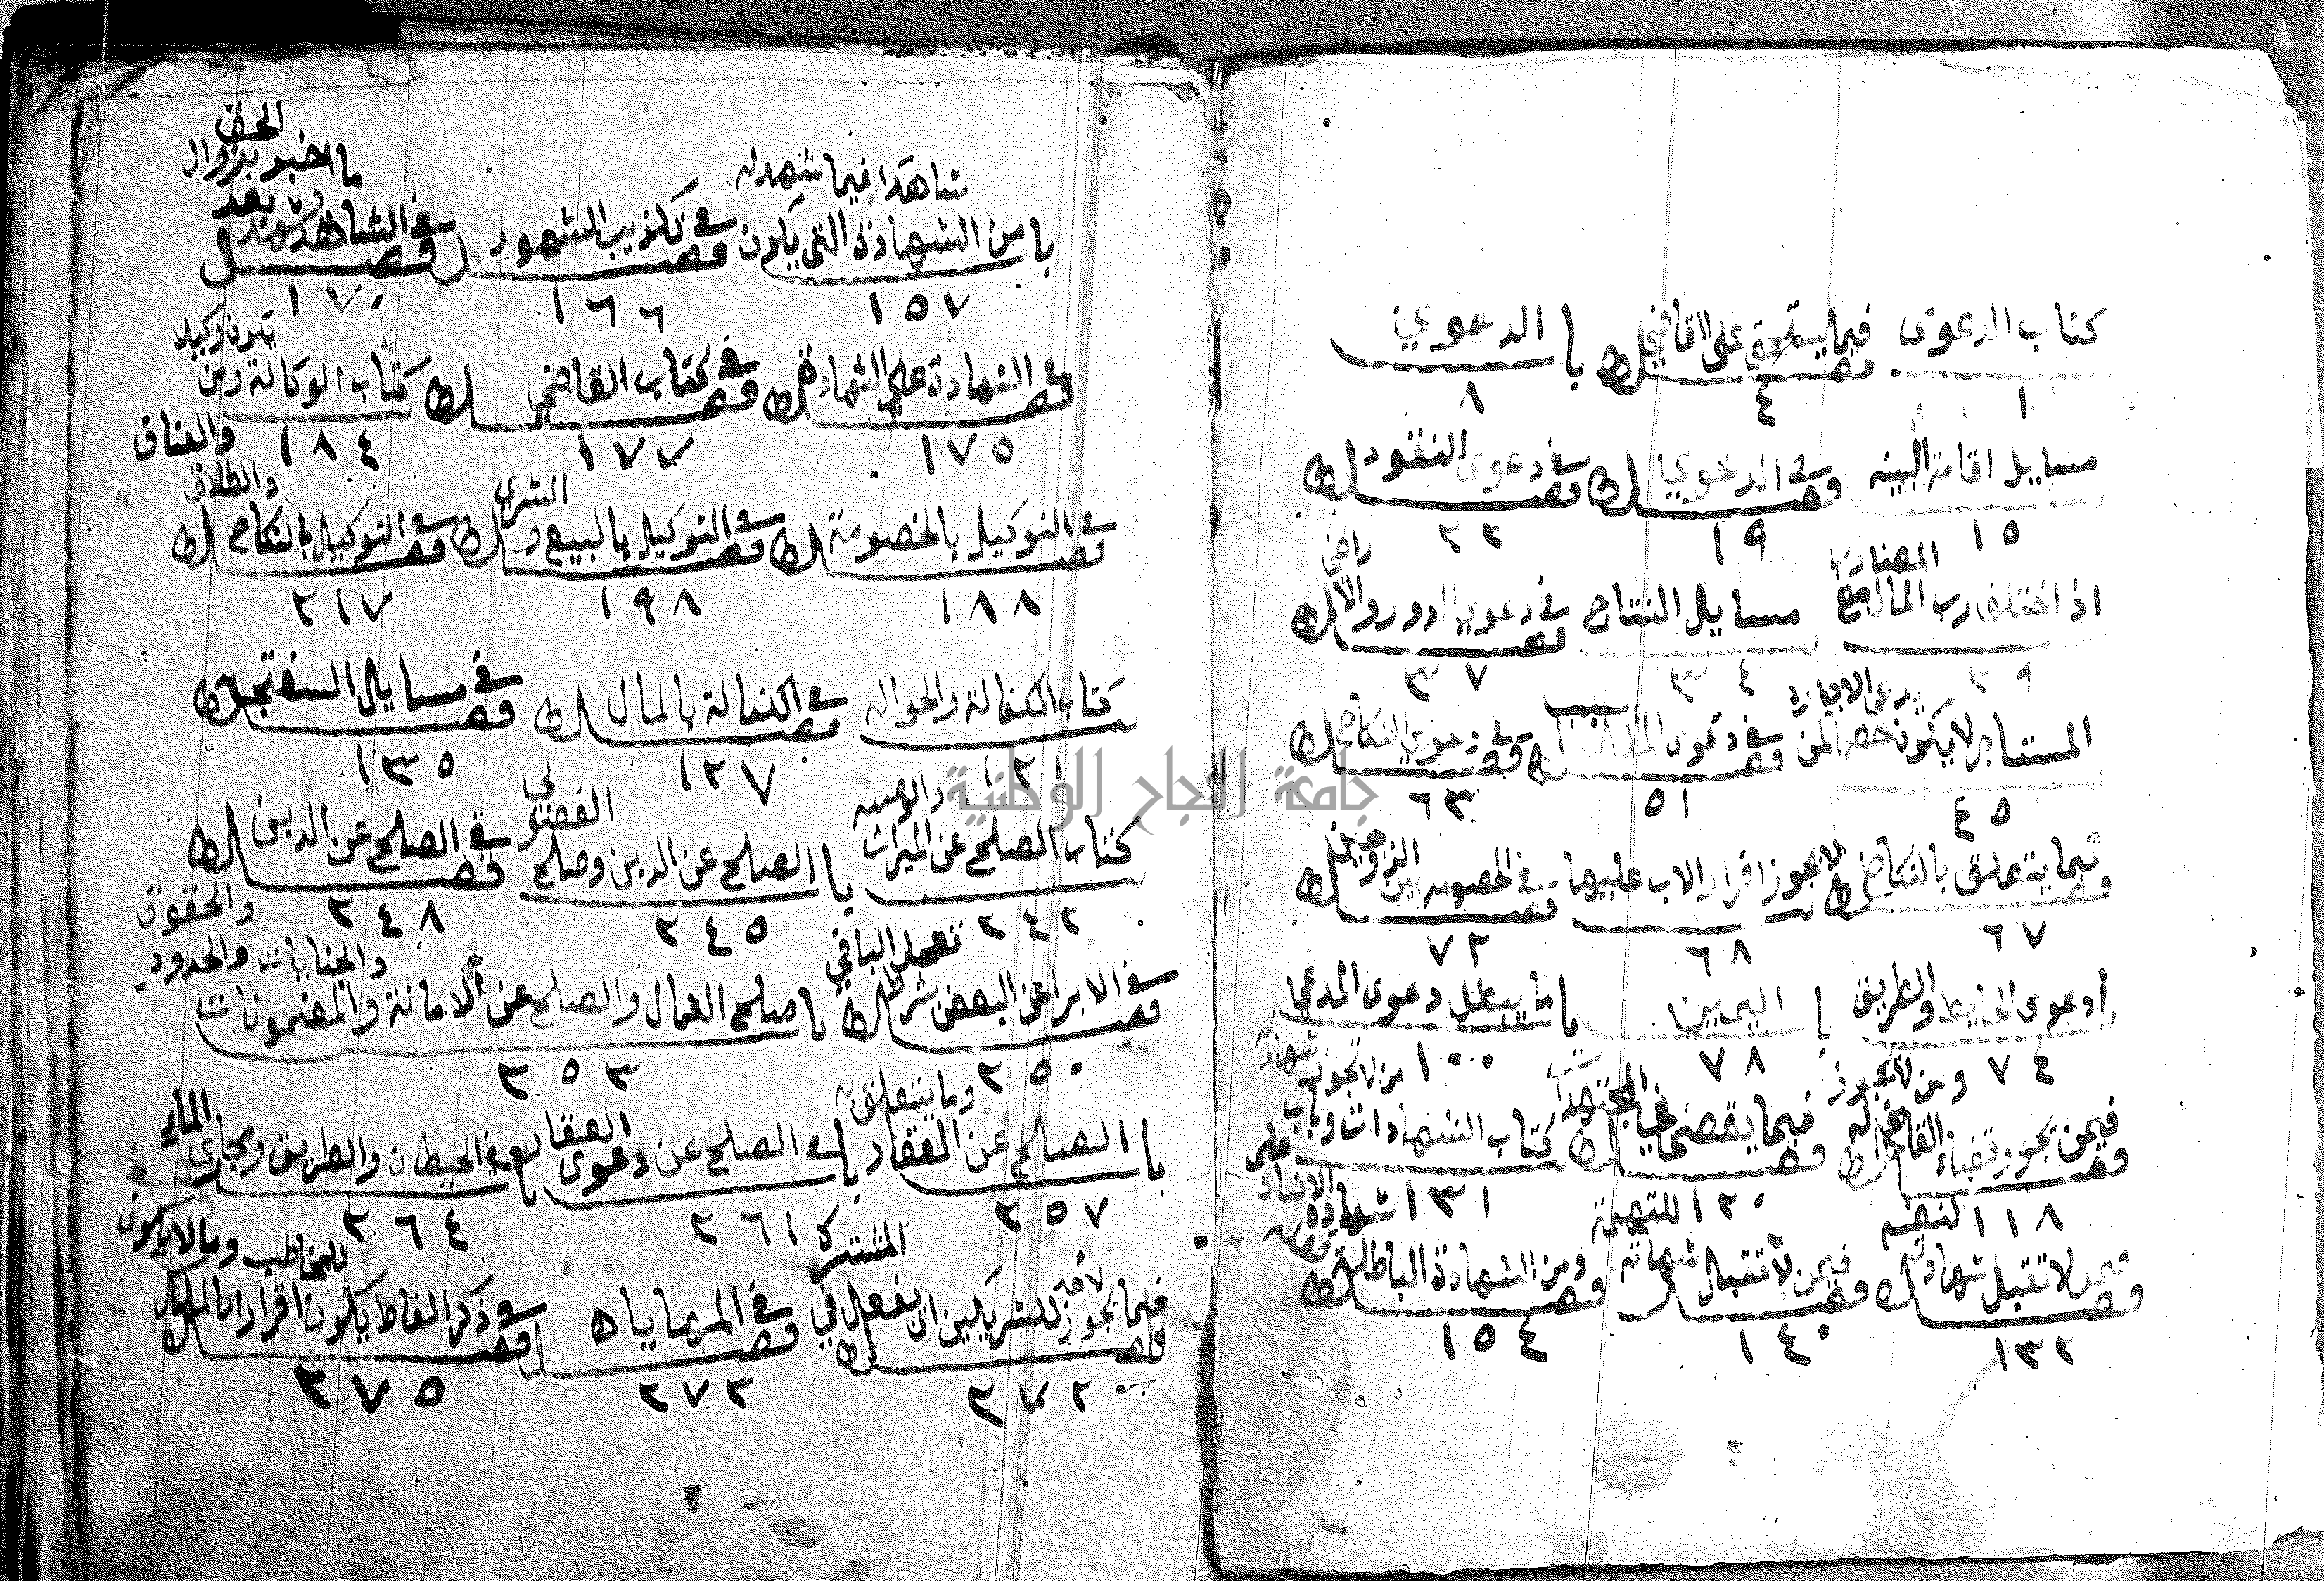 كتاب الدعوى فيما يستحق على القاضي فصل باب الدعوي
١ ٤ ٨
مسايل اقامة البينه فصل في الدعوي فصل في دعوى النقود
١٥ ١٩ ٢٢
اذا اختلف رب المال مع المضارب مسايل النتاج فصل في دعوي الدور والاراضي
٢٩ ٣٤ ٣٧
المستاجر لا يكون خصما لمن يدعي الاجارة فصل في دعوى الملك بسبب فصل في دعوي النكاح
٤٥ ٥١ ٦٣
فصل فيما يتعلق بالنكاح لا يجوز اقرار الاب عليها فصل في الخصومه بين الزوجين
٦٧ ٦٨ ٧٢
دعوى الحايط والطريق باب اليمين باب ما يبطل دعوى المدعي
٧٤ ٧٨ ١٠٠
فصل فيمن يجوز قضاء القاضي له ومن لا يجوز فصل فيما يقضي في المجتهدات كتاب الشهادات
١١٨ ١٢٠ ١٣١
فصل فيمن لا تقبل شهادته فصل فيمن لا تقبل شهادته للتهمة فصل ومن الشهادة الباطلة
١٣٢ ١٤٠ ١٥٤
باب من الشهادة التي يكون شاهدا فيما شهد له فصل في تكذيب الشهود فصل في الشاهد يشهد بعد ما اخبر بزوال الحق
١٥٧ ١٦٦ ١٧٠
فصل في الشهادة على الشهادة فصل في كتاب القاضي كتاب الوكالة ومن يكون وكيلا
١٧٥ ١٧٧ ١٨٤
فصل في التوكيل بالخصومة فصل في التوكيل بالبيع والشرى فصل في التوكيل بالنكاح والطلاق والعتاق
١٨٨ ١٩٨ ٢١٧
كتاب الكفالة والحواله فصل في الكفالة بالمال فصل في مسايل السفتجة
١٢٧ ١٣٥
كتاب الصلح عن الميراث والوصيه باب الصلح عن الدين وصلح الفضولي فصل في الصلح عن الدين
٢٤٢ ٢٤٥ ٢٤٨
فصل في الابرا عن البعض بشرط تعجيل الباقي باب صلح العمال والصلح عن الامانة والمضمونات والجنايات والحدود والحقوق
٢٥٠ ٢٥٣
باب الصلح عن العقار وما يتعلق به باب في الصلح عن دعوى العقار باب في الحيطان والطريق ومجاري الماء
٢٥٧ ٢٦١ ٢٦٤
فصل فيما يجوز لاحد للشريكين ان يفعل في المشترك فصل في المهاياة فصل في ذكر الفاظ يكون اقرارا بالملك للمخاطب وما لا يكون
٢٧٢ ٢٧٣ ٢٧٥
جامعة النجاح الوطنية